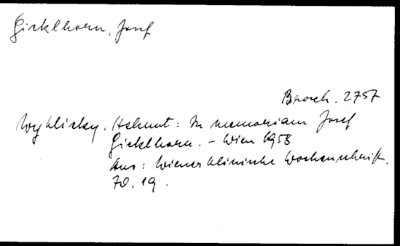 Gicklhorn, Josef
Brosch. 2757
Wyklicky, Helmut: In memoriam Josef
Gicklhorn. - Wien 1958
Aus: Wiener klinische Wochenschrift.
70. 19.